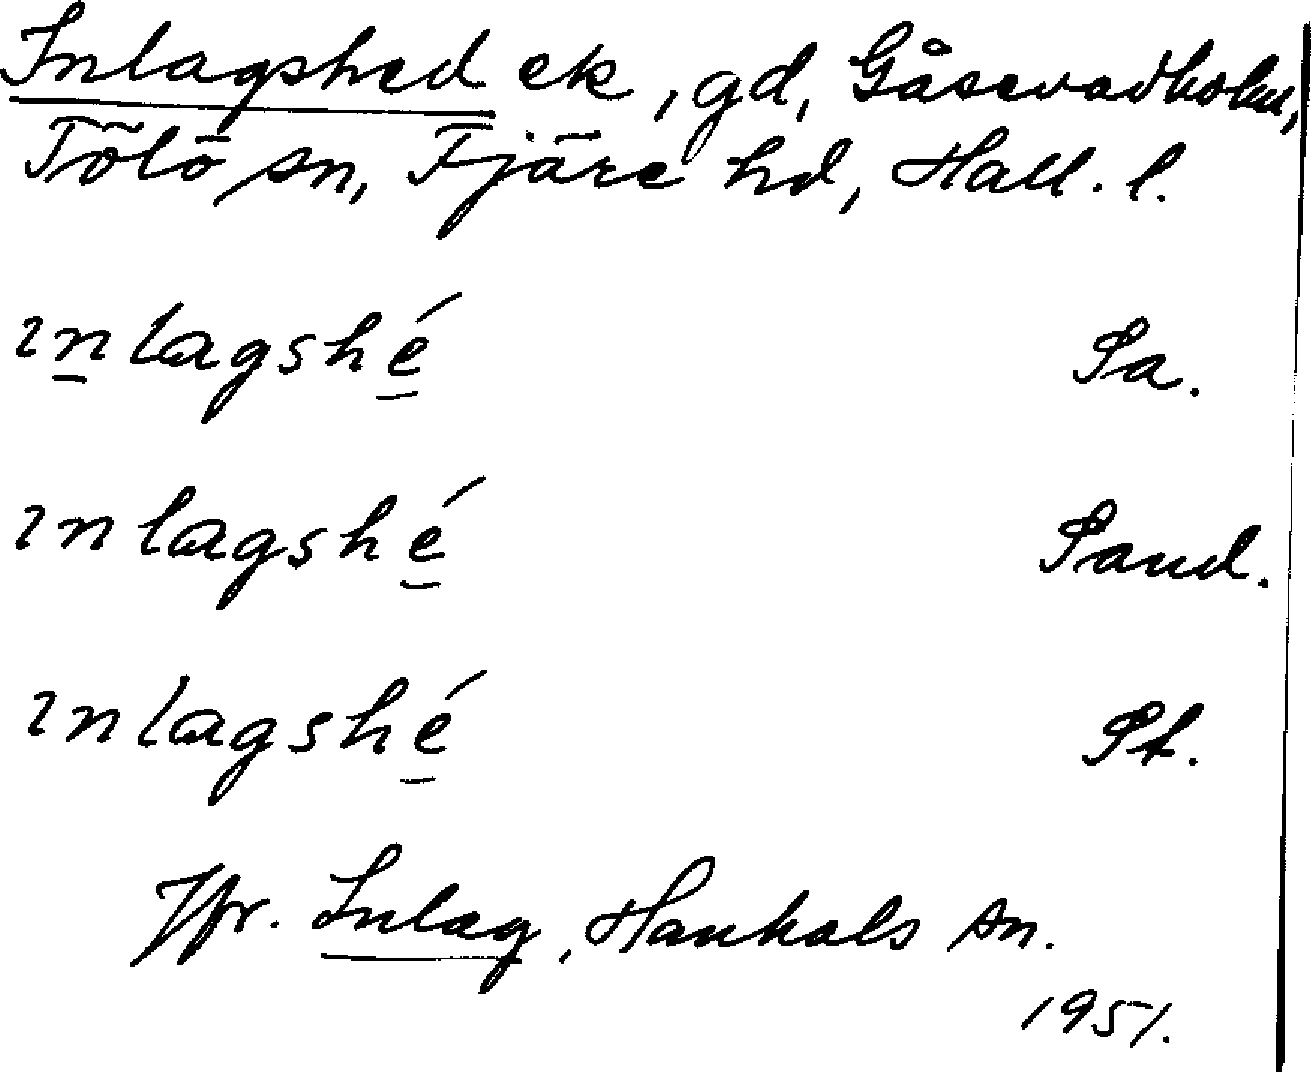 Inlagshed ek, gd, Gåsevadholm,
Tölö sn, Fjäre hd, Hall. l.
ınlagshé Sa.
ınlagshé Sand.
ınlagshé St.
Jfr. Inlag, Hanhals sn.
1951.